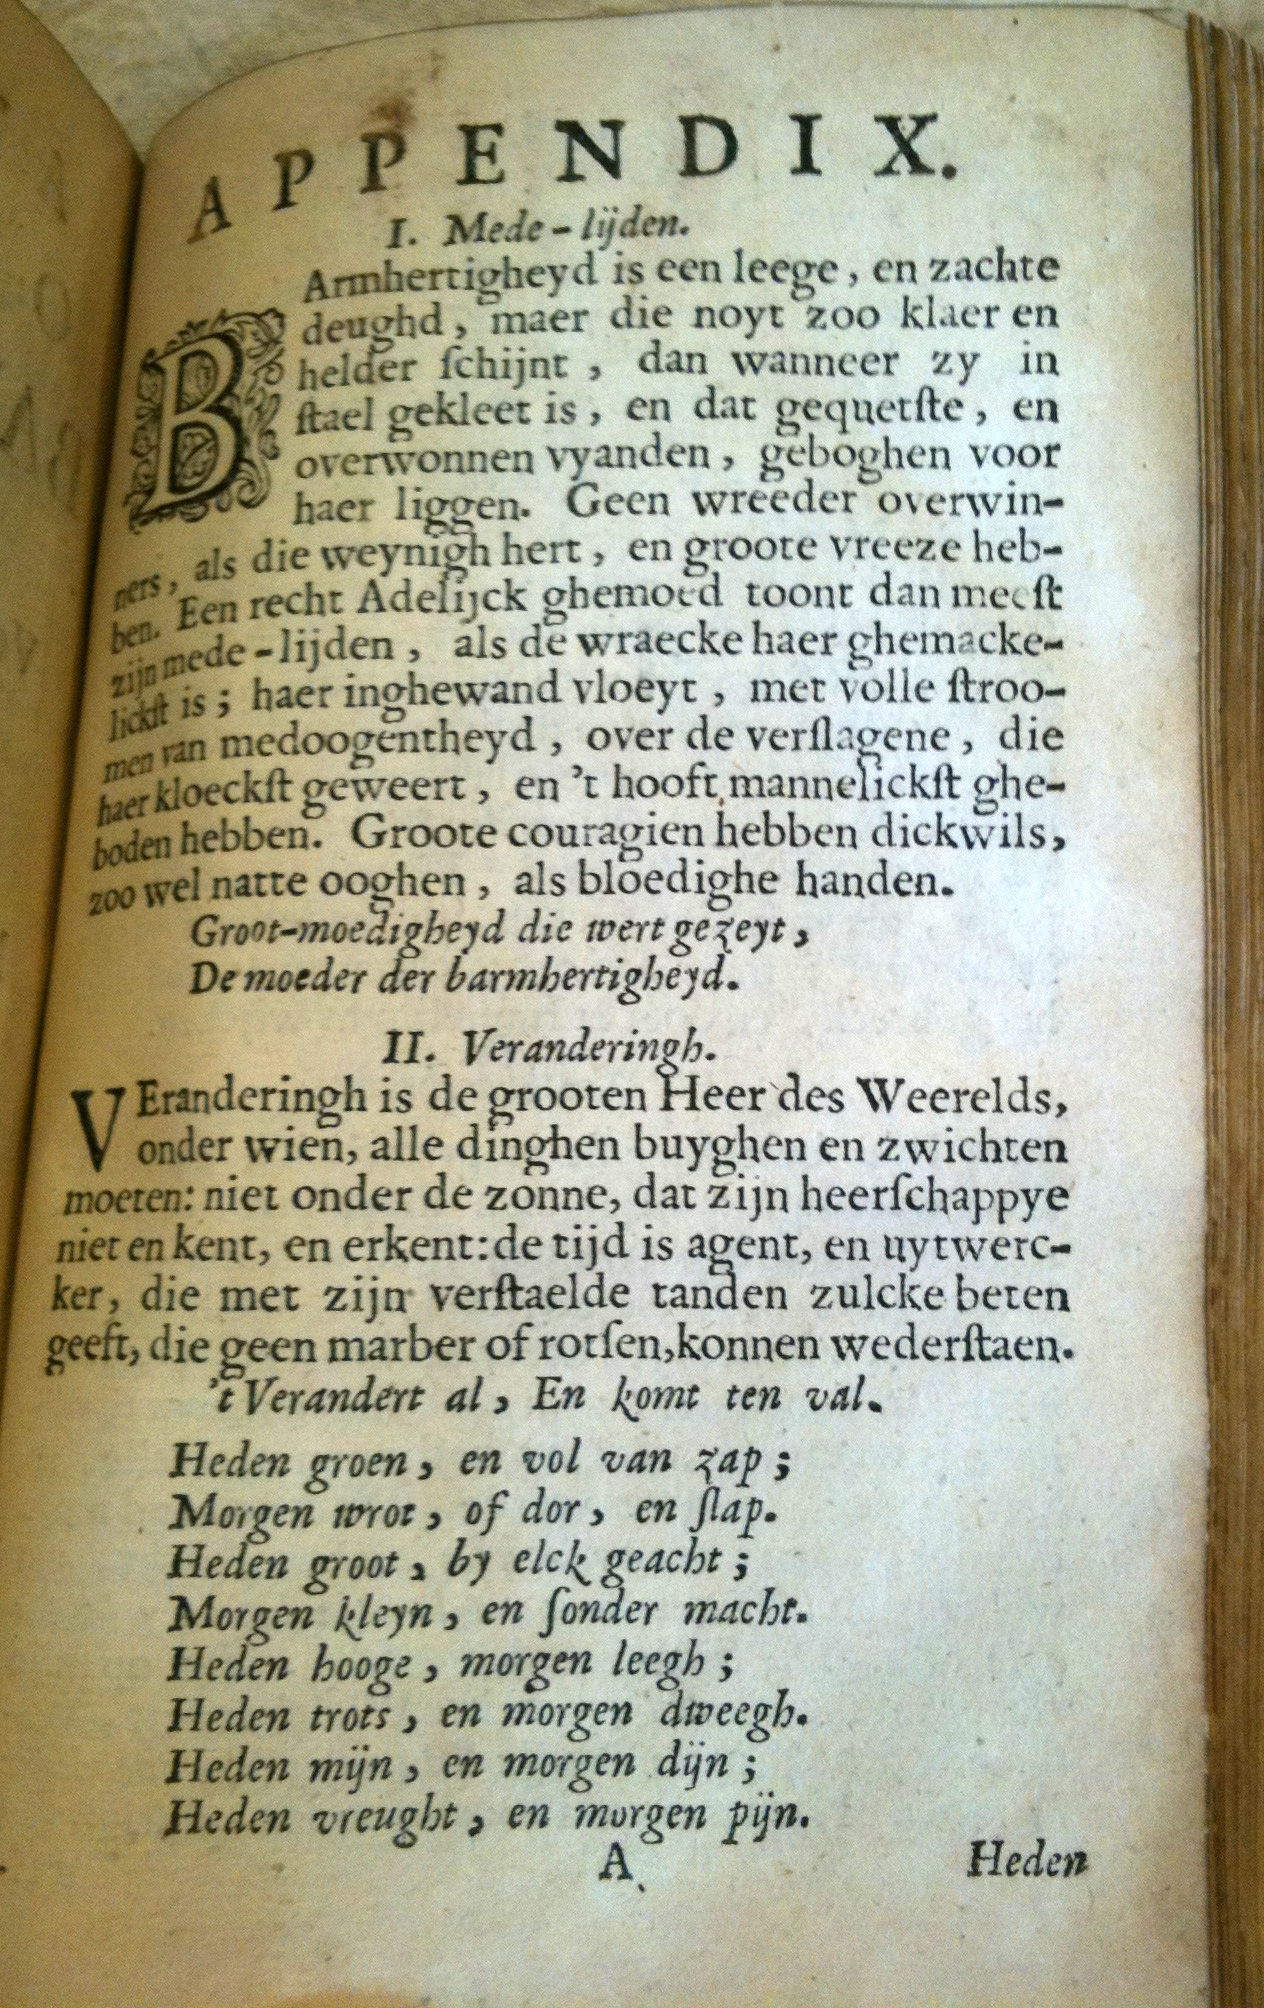 APPENDIX.
I. Mede-lijden.
BArmhertigheyd is een leege, en zachte
deughd, maer die noyt zoo klaer en
helder ſchijnt, dan wanneer zy in
ſtael gekleet is, en dat gequetſte, en
overwonnen vyanden, geboghen voor
haer liggen. Geen wreeder overwin-
ners, als die weynigh hert, en groote vreeze heb-
ben. Een recht Adelijck ghemoed toont dan meeſt
zijn mede-lijden, als de wraecke haer ghemacke-
lickſt is; haer inghewand vloeyt, met volle ſtroo-
men van medoogentheyd, over de verſlagene, die
haer kloeckſt geweert, en 't hooft mannelickſt ghe-
boden hebben. Groote couragien hebben dickwils,
zoo wel natte ooghen, als bloedighe handen.
Groot-moedigheyd die wert gezeyt,
De moeder der barmhertigheyd.
II. Veranderingh.
VEranderingh is de grooten Heer des Weerelds,
onder wien, alle dinghen buyghen en zwichten
moeten: niet onder de zonne, dat zijn heerſchappye
niet en kent, en erkent: de tijd is agent, en uytwerc-
ker, die met zijn verſtaelde tanden zulcke beten
geeft, die geen marber of rotſen, konnen wederſtaen.
't Verandert al, En komt ten val.
Heden groen, en vol van zap;
Morgen wrot, of dor, en ſlap.
Heden groot, by elck geacht;
Morgen kleyn, en ſonder macht.
Heden hooge, morgen leegh;
Heden trots, en morgen dweegh.
Heden mijn, en morgen dijn;
Heden vreught, en morgen pijn.
A Heden